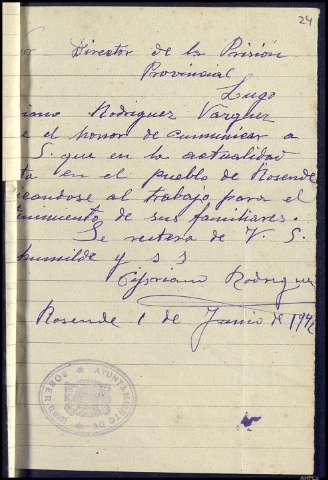 24
Director de la Prisión
Provincial
Lugo
iano Rodriguez Vazquez
e el honor de cumunicar a
S. que en la actualidad
ta en el pueblo de Rosende
icandose al trabajo para el
de sus familiares.
Se reitera de V. S.
humilde y s s
Cipriano Rodrigue
Rosende 1 de Junio de 1942
AYUNTAMIENTO DE